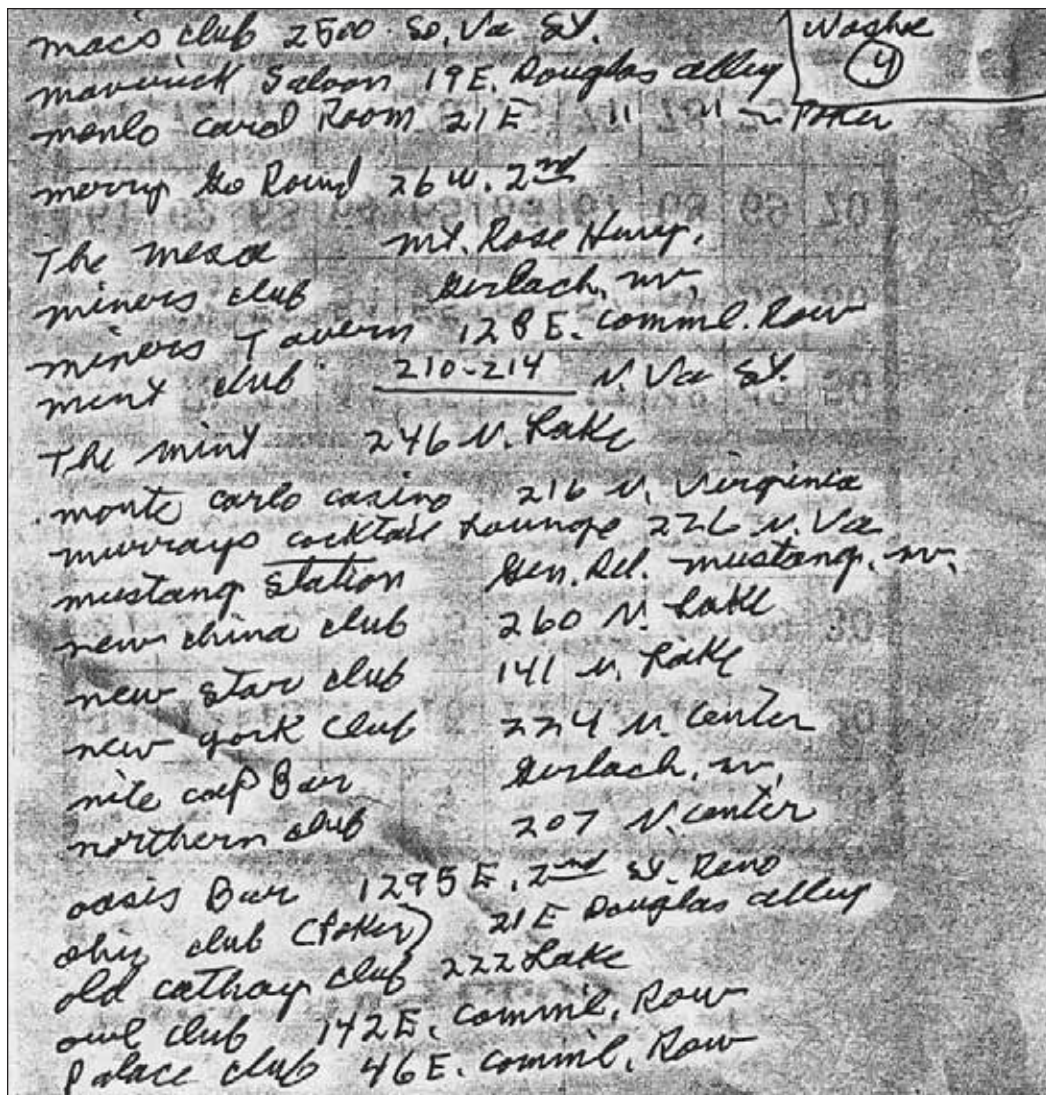 macs club 2500 So. Va St.
maverick Saloon 19 E. Douglas alley
menlo card Room 21 E " " ~ Poker
Washoe
4
merry Go Round 26 W. 2nd
The mesa mt. Rose Hiway,
miners club Gerlach, nv,
miners Tavern 128 E. comml. Row
mint club 210-214 N. Va St.
The mint 246 N. Lake
monte carlo casino 216 N. Virginia
murrays cocktail Lounge 226 N. Va
mustang Station Gen. Del. mustang, nv,
new china club 260 N. Lake
new star club 141 N. Lake
new york club 224 N. center
nite cap Bar Gerlach, nv,
northern club 207 N. center
oasis Bar 1295 E. 2nd St. Reno
club (Poker) 21 E Douglas alley
old cathay club 222 Lake
owl club 142 E. comm'l, Row
Palace club 46 E. comm'l, Row